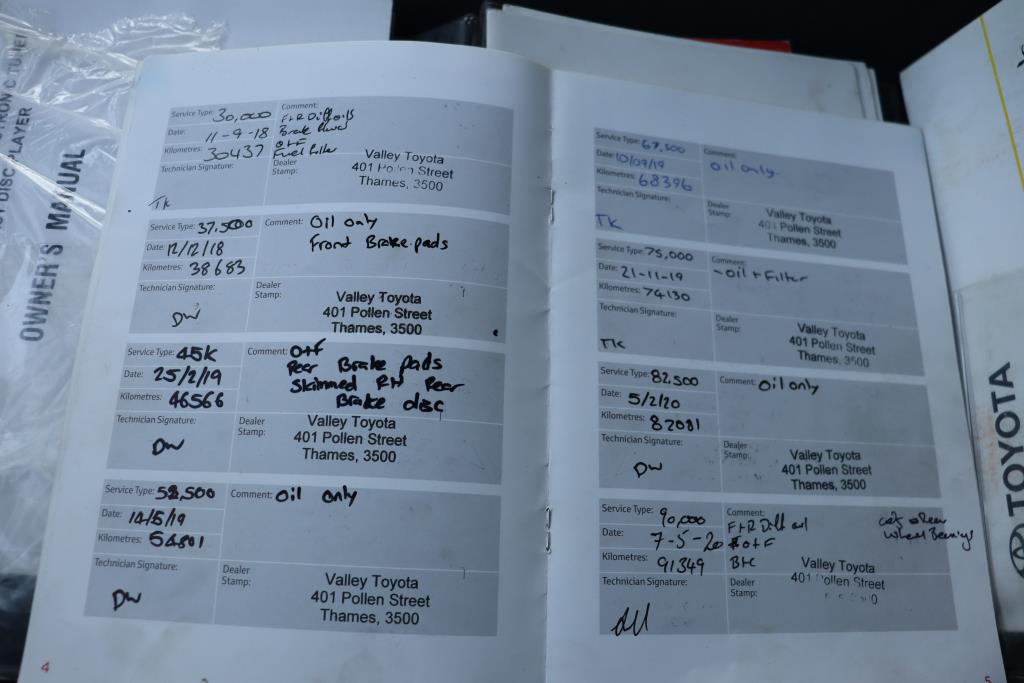 OWNER'S MANUAL
DISC PLAYER
Service Type: 30,000
Comment: F+R Diff oils
Date: 11-9-18
Brake
O+F
Kilometres: 30437
Fuel Filter
Technician Signature:
Dealer Stamp:
Valley Toyota
401 Pollen Street
Thames, 3500
TK
Service Type: 37,500
Comment: Oil only
Date: 12/12/18
Front Brake pads
Kilometres: 38683
Technician Signature:
Dealer Stamp:
Valley Toyota
401 Pollen Street
Thames, 3500
DW
Service Type: 45K
Comment: O+F
Date: 25/2/19
Rear Brake pads
Kilometres: 46566
Skimmed RH Rear
Brake disc
Technician Signature:
Dealer Stamp:
Valley Toyota
401 Pollen Street
Thames, 3500
DW
Service Type: 52,500
Comment: Oil only
Date: 14/5/19
Kilometres: 54801
Technician Signature:
Dealer Stamp:
Valley Toyota
401 Pollen Street
Thames, 3500
DW
4
Service Type: 67,500
Comment: Oil only
Date: 10/09/19
Kilometres: 68396
Technician Signature:
Dealer Stamp:
Valley Toyota
401 Pollen Street
Thames, 3500
TK
Service Type: 75,000
Comment: -Oil + Filter
Date: 21-11-19
Kilometres: 74130
Technician Signature:
Dealer Stamp:
Valley Toyota
401 Pollen Street
Thames, 3500
TK
Service Type: 82,500
Comment: Oil only
Date: 5/2/20
Kilometres: 82081
Technician Signature:
Dealer Stamp:
Valley Toyota
401 Pollen Street
Thames, 3500
DW
Service Type: 90,000
Comment: F+R Diff oil
Date: 7-5-20
O+F
Wheel Bearings
Kilometres: 91349
Technician Signature:
Dealer Stamp:
Valley Toyota
401 Pollen Street
5
TOYOTA